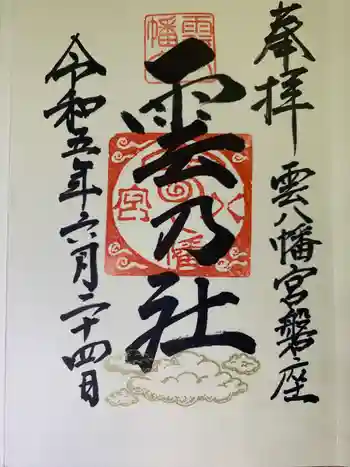 奉拝
雲八幡宮磐座
雲乃社
令和五年六月二十四日
雲
幡
八
宮